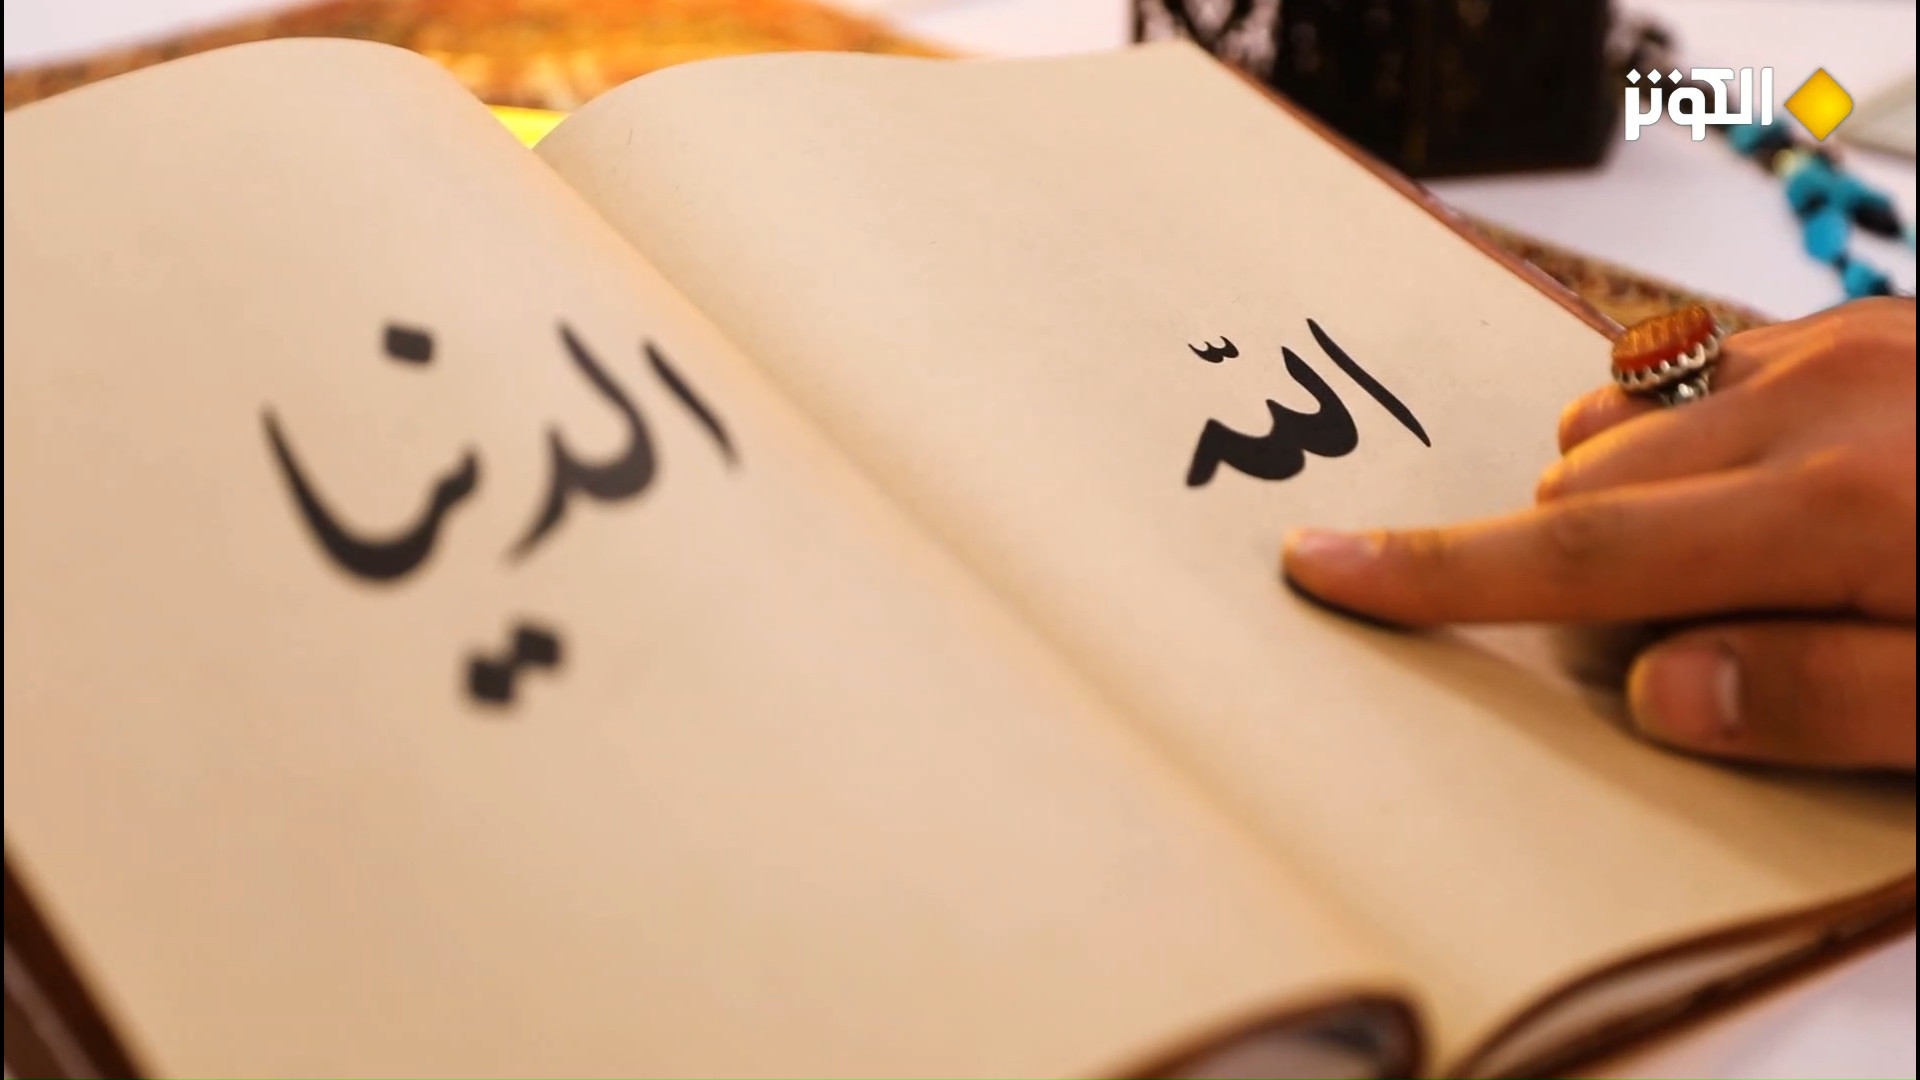 الكوثر
اللّه
الدنيا